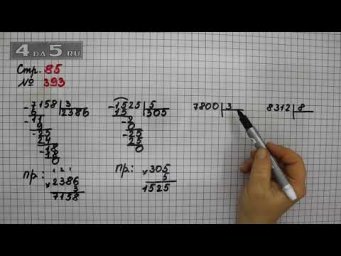 4 da 5 .RU
Стр. 85
№ 393
-7158 | 3
6 | 2386
-11
9
-25
24
-18
18
0
пр: × 2386
3
7158
-1525 | 5
15 | 305
-2
0
-25
25
0
пр: × 305
5
1525
7800 | 3
8312 | 8